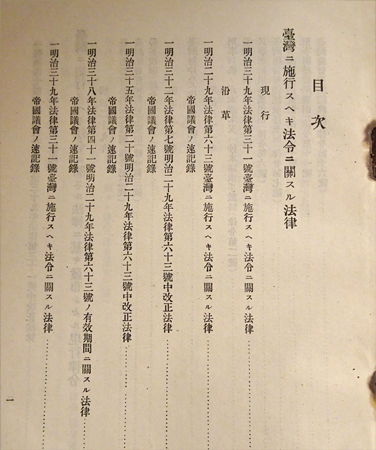 目次
臺灣ニ施行スヘキ法令ニ關スル法律
現行
一明治三十九年法律第三十一號臺灣ニ施行スヘキ法令ニ關スル法律
沿革
一明治二十九年法律第六十三號臺灣ニ施行スヘキ法令ニ關スル法律
帝國議會ノ速記錄
一明治三十二年法律第七號明治二十九年法律第六十三號中改正法律
帝國議會ノ速記錄
一明治三十五年法律第二十號明治二十九年法律第六十三號中改正法律
帝國議會ノ速記錄
一明治三十八年法律第四十一號明治二十九年法律第六十三號ノ有效期間ニ關スル法律
帝國議會ノ速記錄
一明治三十九年法律第三十一號臺灣ニ施行スヘキ法令ニ關スル法律
帝國議會ノ速記錄
一